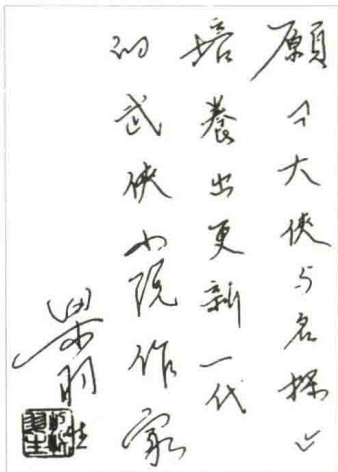 願《大俠与名探》
培養出更新一代
的武俠小說作家
梁羽生